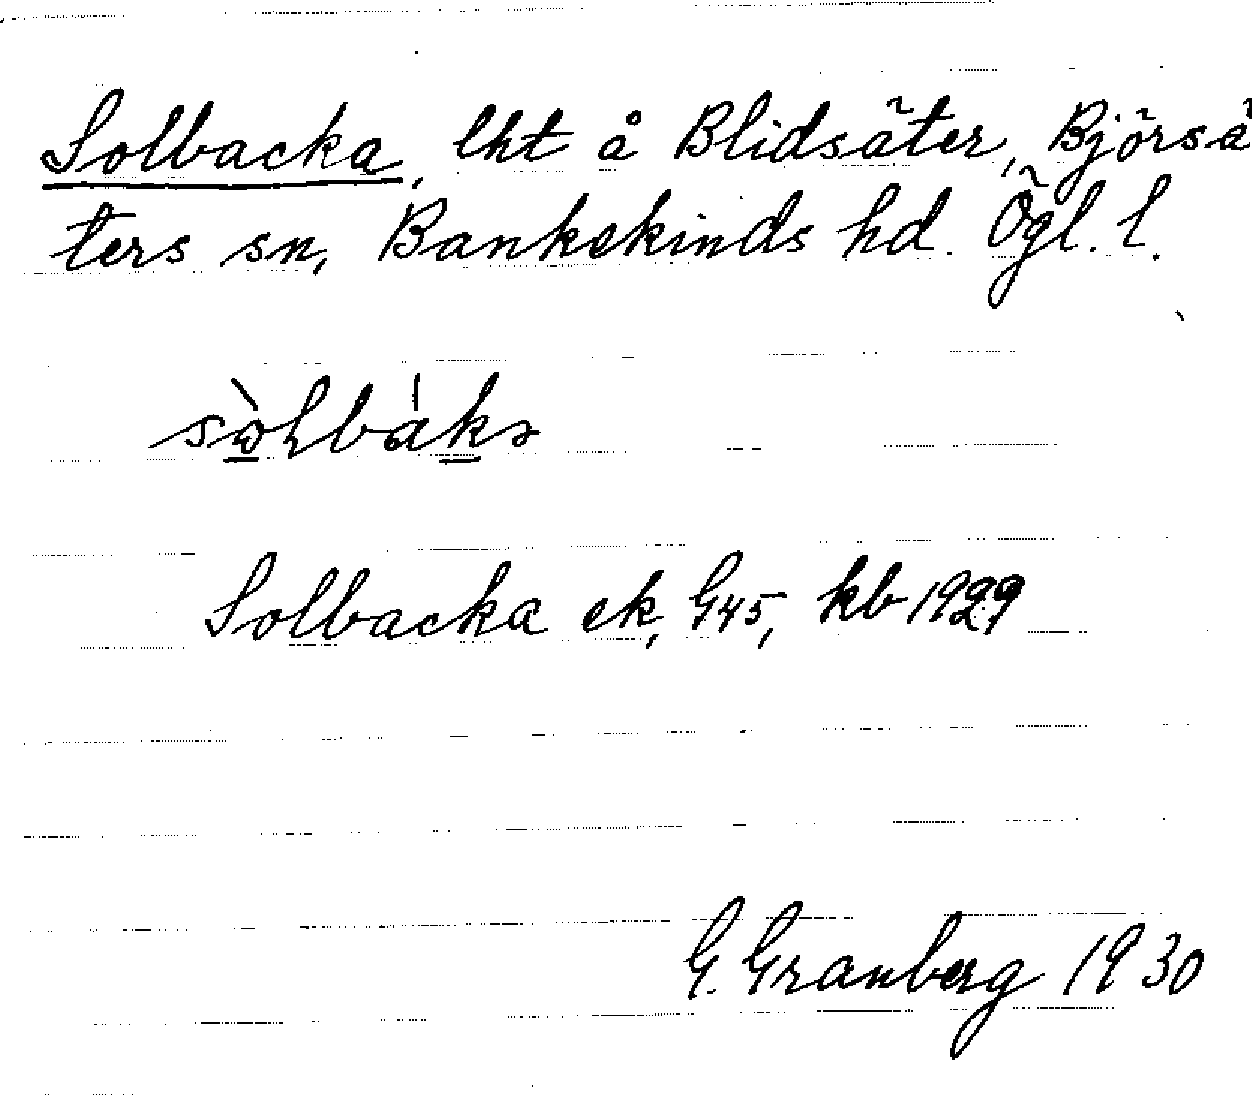 Solbacka, lht å Blidsäter, Björsä
ters sn, Bankekinds hd. Ögl. l.
Solbacka ek, G45, kb 1929
G. Granberg 1930